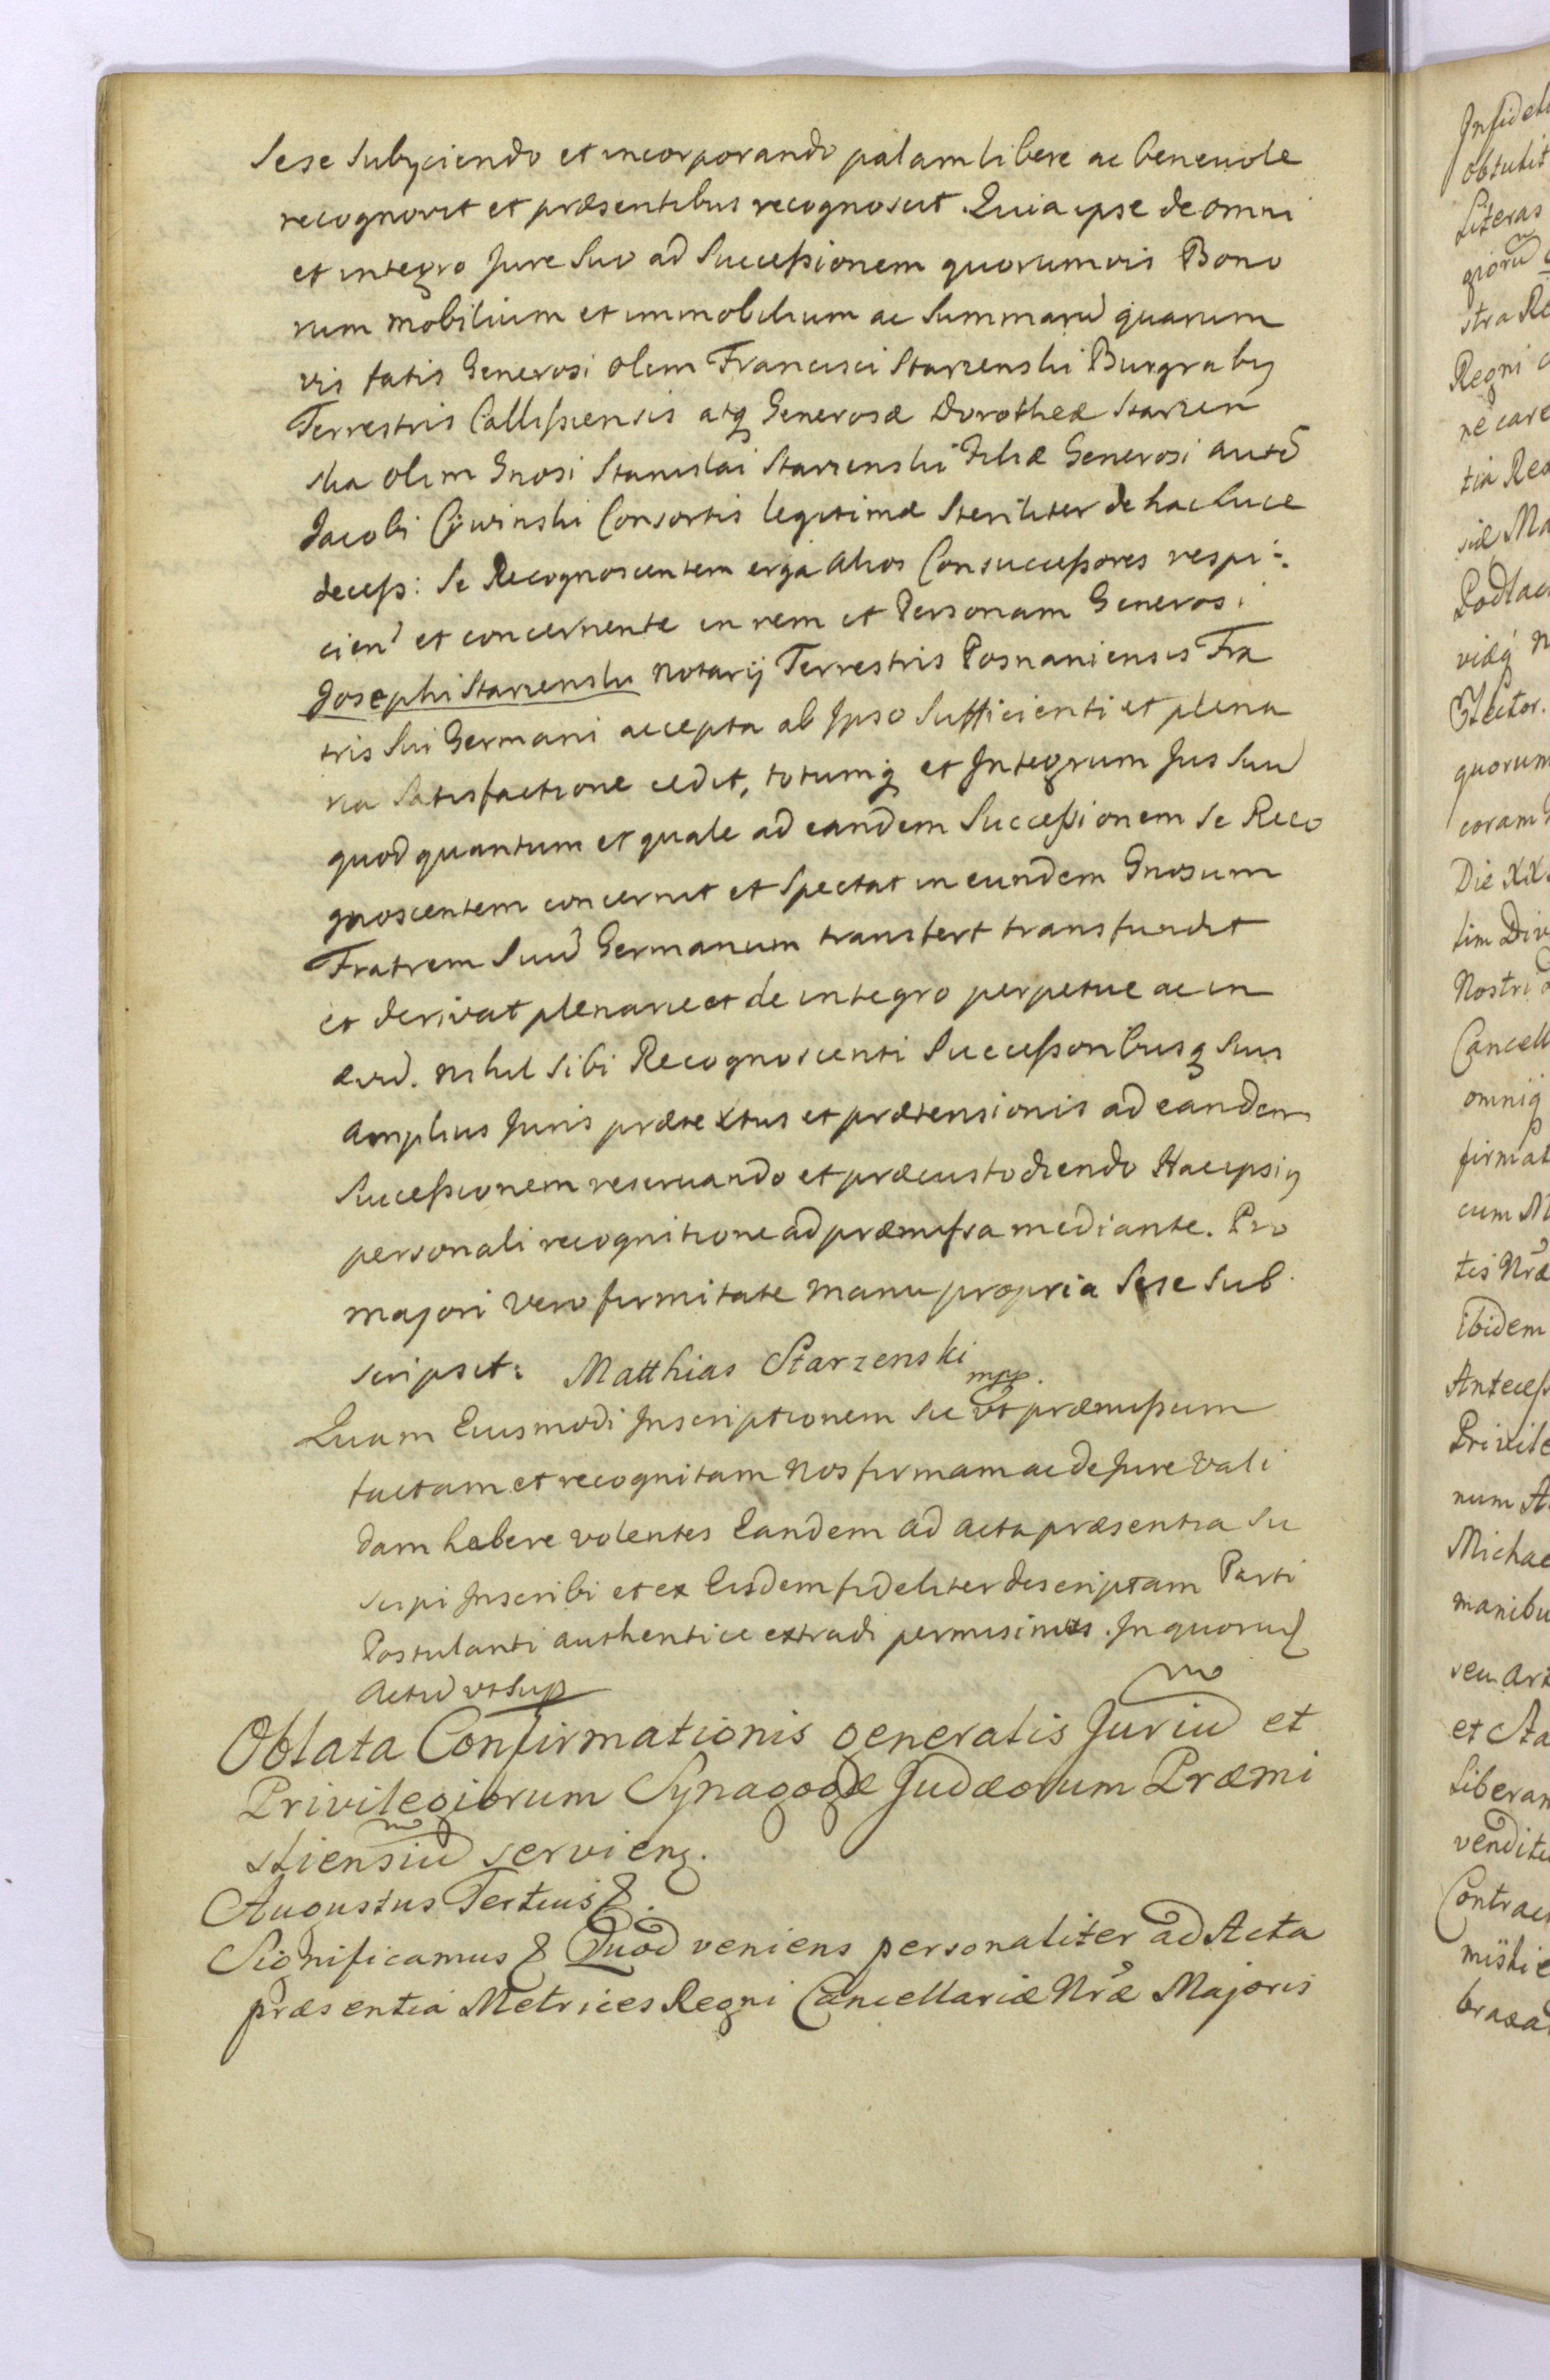 Sese Subyciendo et incorporando palam libere ac benevole
recognovit et præsentibus recognoscit. Quia ipse de omni
et integro Jure Suo ad Successionem quorumvis Bono
rum mobilium et immobilium ac Summarū quarum
vis fatis Generosi olim Francisci Starzenski Burgrabij
Terrestris Callissiensis atq Generosæ Dorotheæ Starzen
ska olim Gnosi Stanislai Starzenski Filiæ Generosi autē
Jacobi Cywinski Consortis legitimæ Steriliter de hac Luce
decess: Se Recognoscentem erga alios Consuccessores respi:
cien et concernente in rem et Personam Generosi
Josephi Starzenski Notarij Terrestris Posnaniensis Fra
tris Sui Germani accepta ab Ipso Sufficienti et plena
ria Satisfactione cedit, totumq et Integrum Jus Suū
quod quantum et quale ad eandem Successionem Se Reco
gnoscentem concernit et Spectat in eundem Gnosum
Fratrem Suū Germanum transfert transfundit
et derivat plenarie et de integro perpetue ac in
ævū. Nihil Sibi Recognoscenti Successoribusq Suis
amplius Juris prætextus et prætensionis ad eandem
Successionem reservando et præcustodiendo Hac ipsiq
personali recognitione ad præmissa mediante. Pro
majori vero firmitate manu propria Sese Sub
scripsit: Matthias Starzenski mpp.
Quam Eiusmodi Inscriptionem Sic ut præmissum
factam et recognitam Nos firmam ac de Jure vali
dam habere volentes Eandem ad Acta præsentia Su
scipi Inscribi et ex Eisdem fideliter descriptam Parti
Postulanti authentice extradi permisimus. In quorum
Actū ut Sup
Oblata Confirmationis generalis Juriū et
Privilegiorum Synagogæ Judæorum Præmi
sliensiū servieng.
Augustus Tertius &.
Significamus & Quod veniens personaliter ad Acta
præsentia Metrices Regni Cancellariæ Nræ Majoris
Infidel
obtulit
Literas
giorū
stra Re
Regni
ne care
tia Re
sie Ma
Podlac
viæq n
Elector.
quorum
coram
Die XIX.
tim Div
Nostri
Cancell
omniq
firmat
cum M
tis Nræ
ibidem
Antecess
Privile
num A
Michae
manibu
seu Art
et Sta
Liberam
venditu
Contrac
mislie
braxa